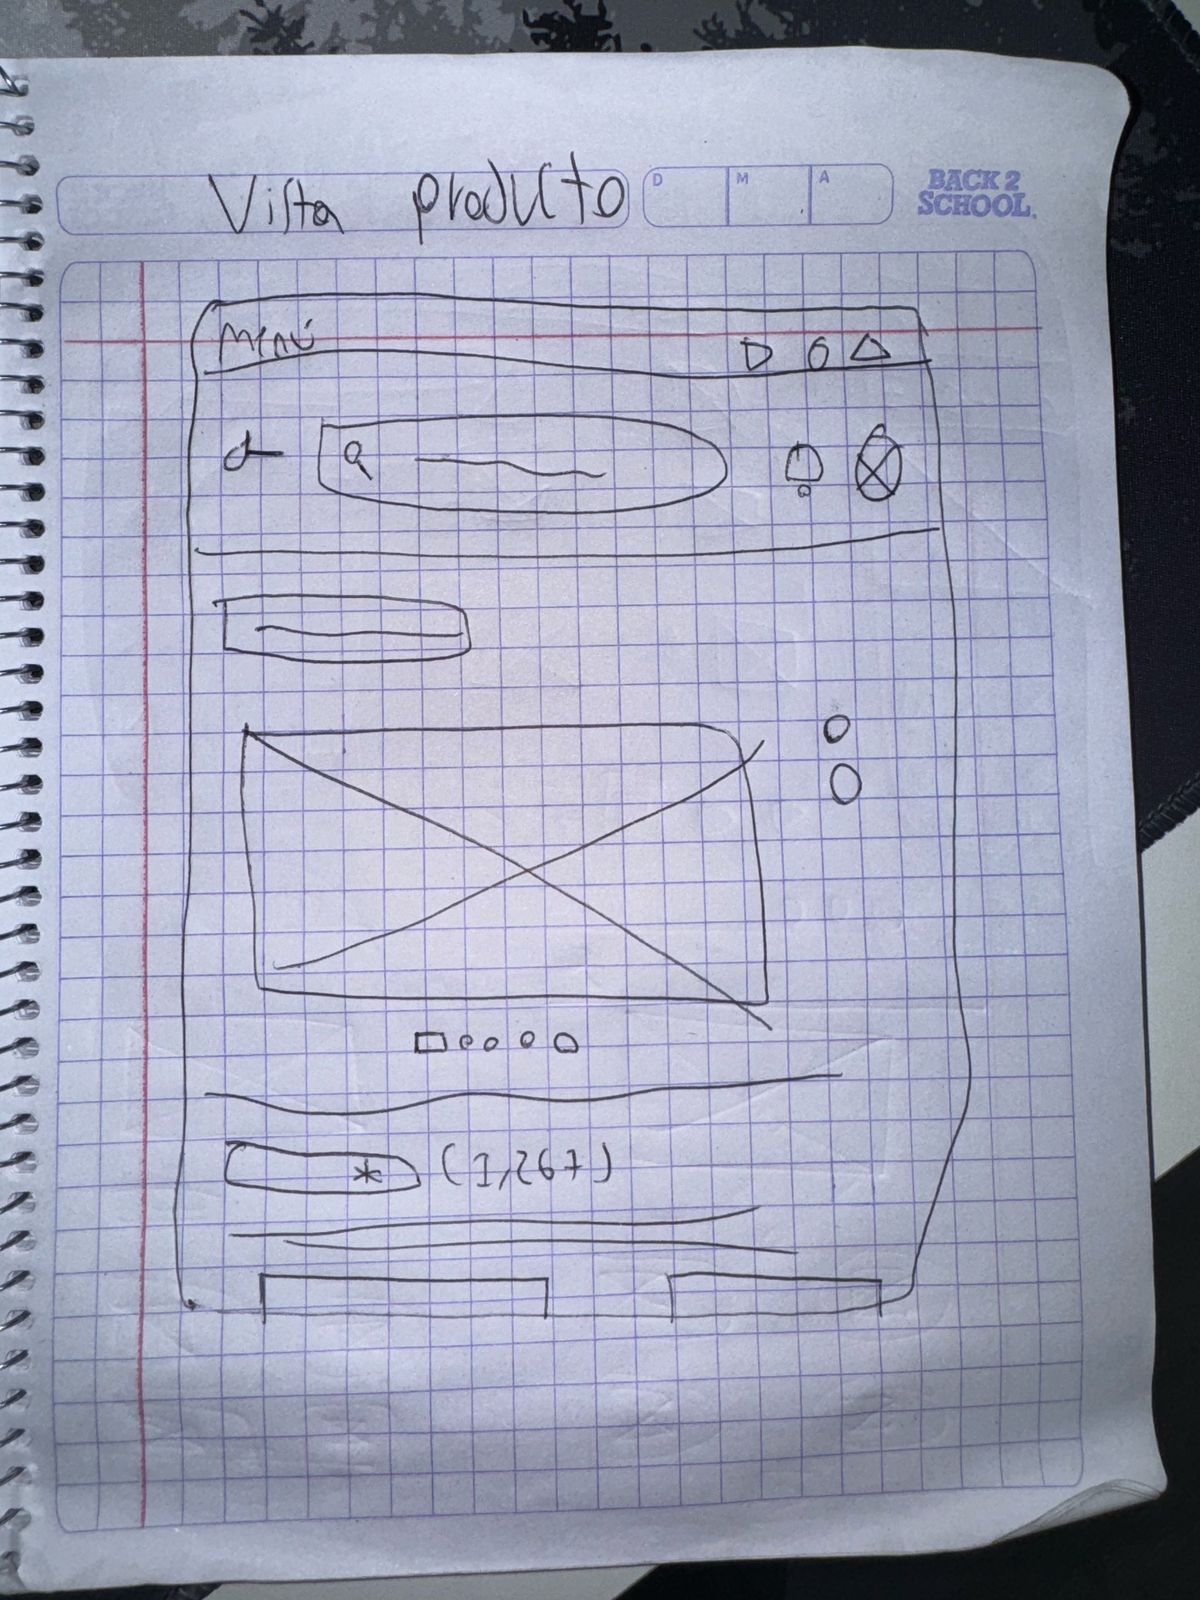 Vista producto
D M A
BACK 2
SCHOOL
Menú
(1,267)